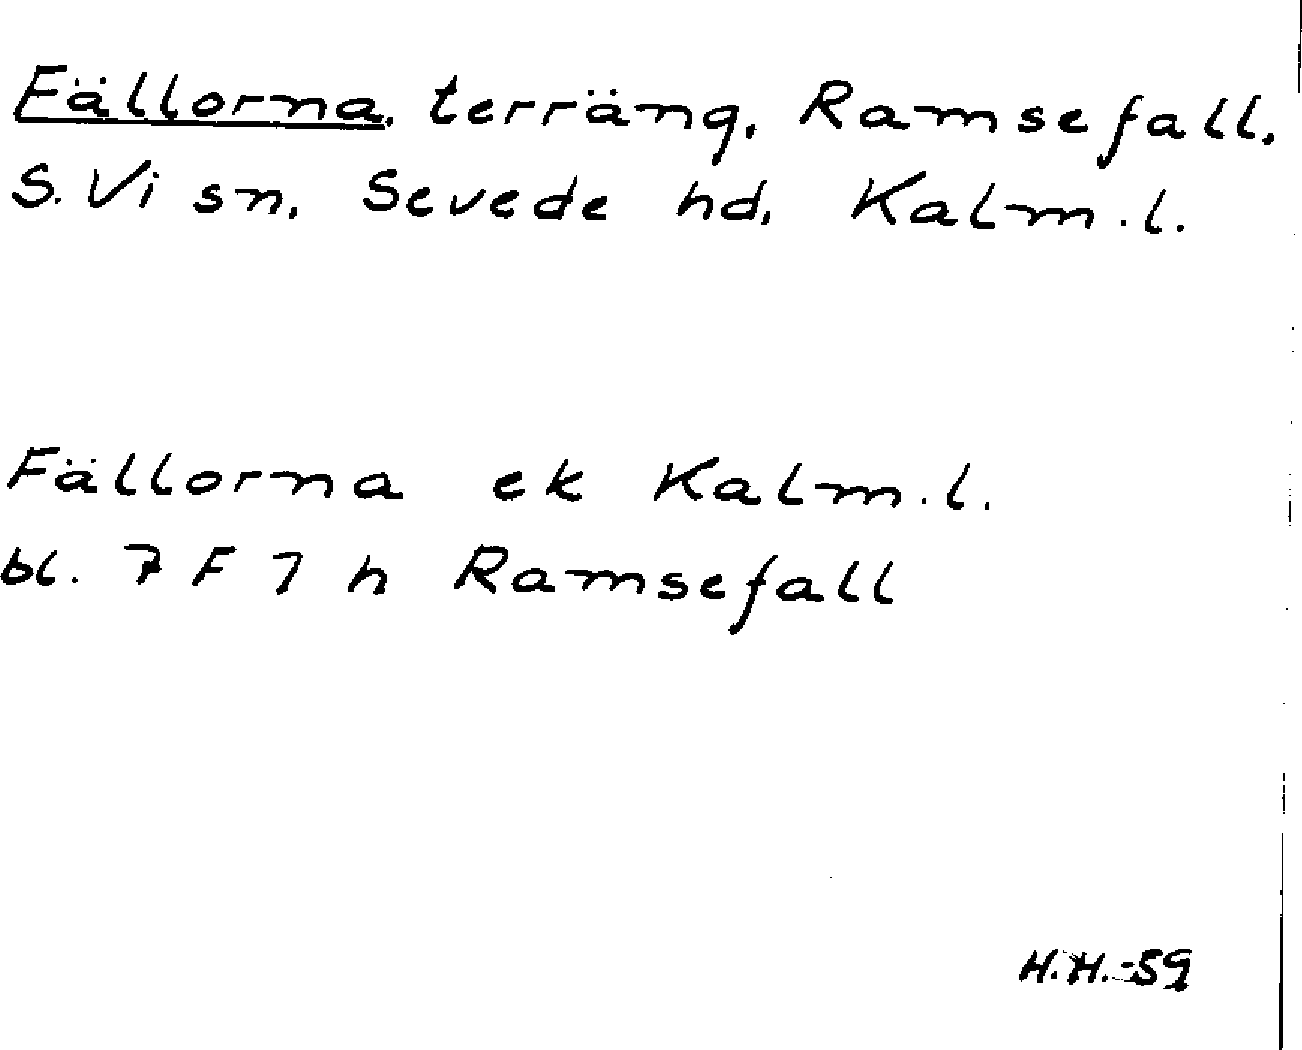 Fällorna, terräng, Ramsefall,
S. Vi sn, Sevede hd, Kalm.l.
Fällorna ek Kalm.l.
bl. 7 F 7 h Ramsefall
H.H.-59